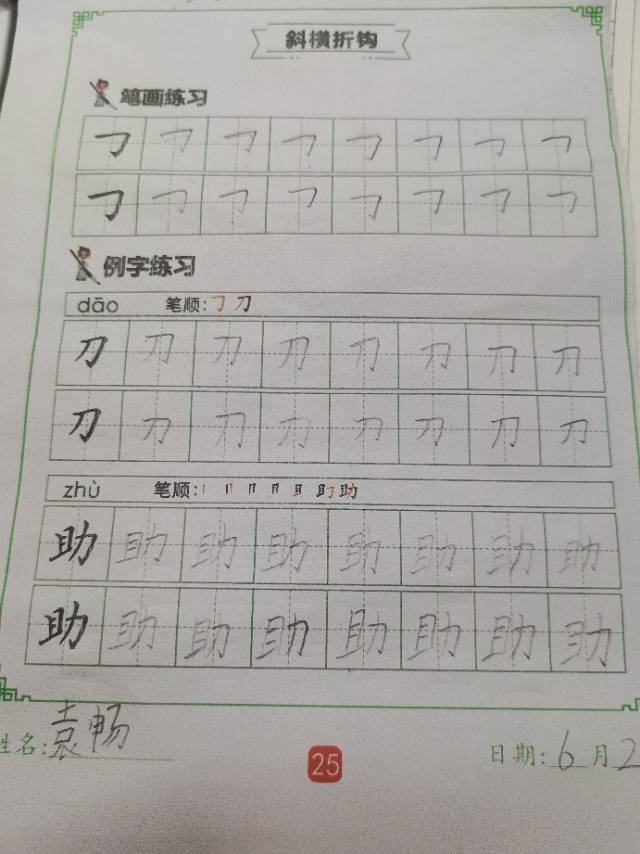 斜横折钩
笔画练习
㇆ ㇆ ㇆ ㇆ ㇆ ㇆ ㇆ ㇆
㇆ ㇆ ㇆ ㇆ ㇆ ㇆ ㇆ ㇆
例字练习
dāo 笔顺: ㇆ 刀
刀 刀 刀 刀 刀 刀 刀 刀
刀 刀 刀 刀 刀 刀 刀 刀
zhù 笔顺: 助
助 助 助 助 助 助 助 助
助 助 助 助 助 助 助 助
姓名: 袁畅
25
日期: 6 月 2